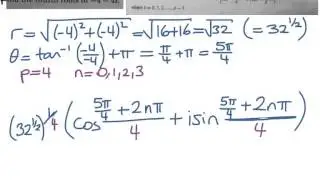 r = √(-4)²+(-4)² = √16+16 = √32 (= 32^½)
θ = tan⁻¹(-4/-4)+π = π/4 + π = 5π/4
p=4 n=0,1,2,3
(32^½)^¼ (cos (5π/4 + 2nπ)/4 + isin (5π/4 + 2nπ)/4)